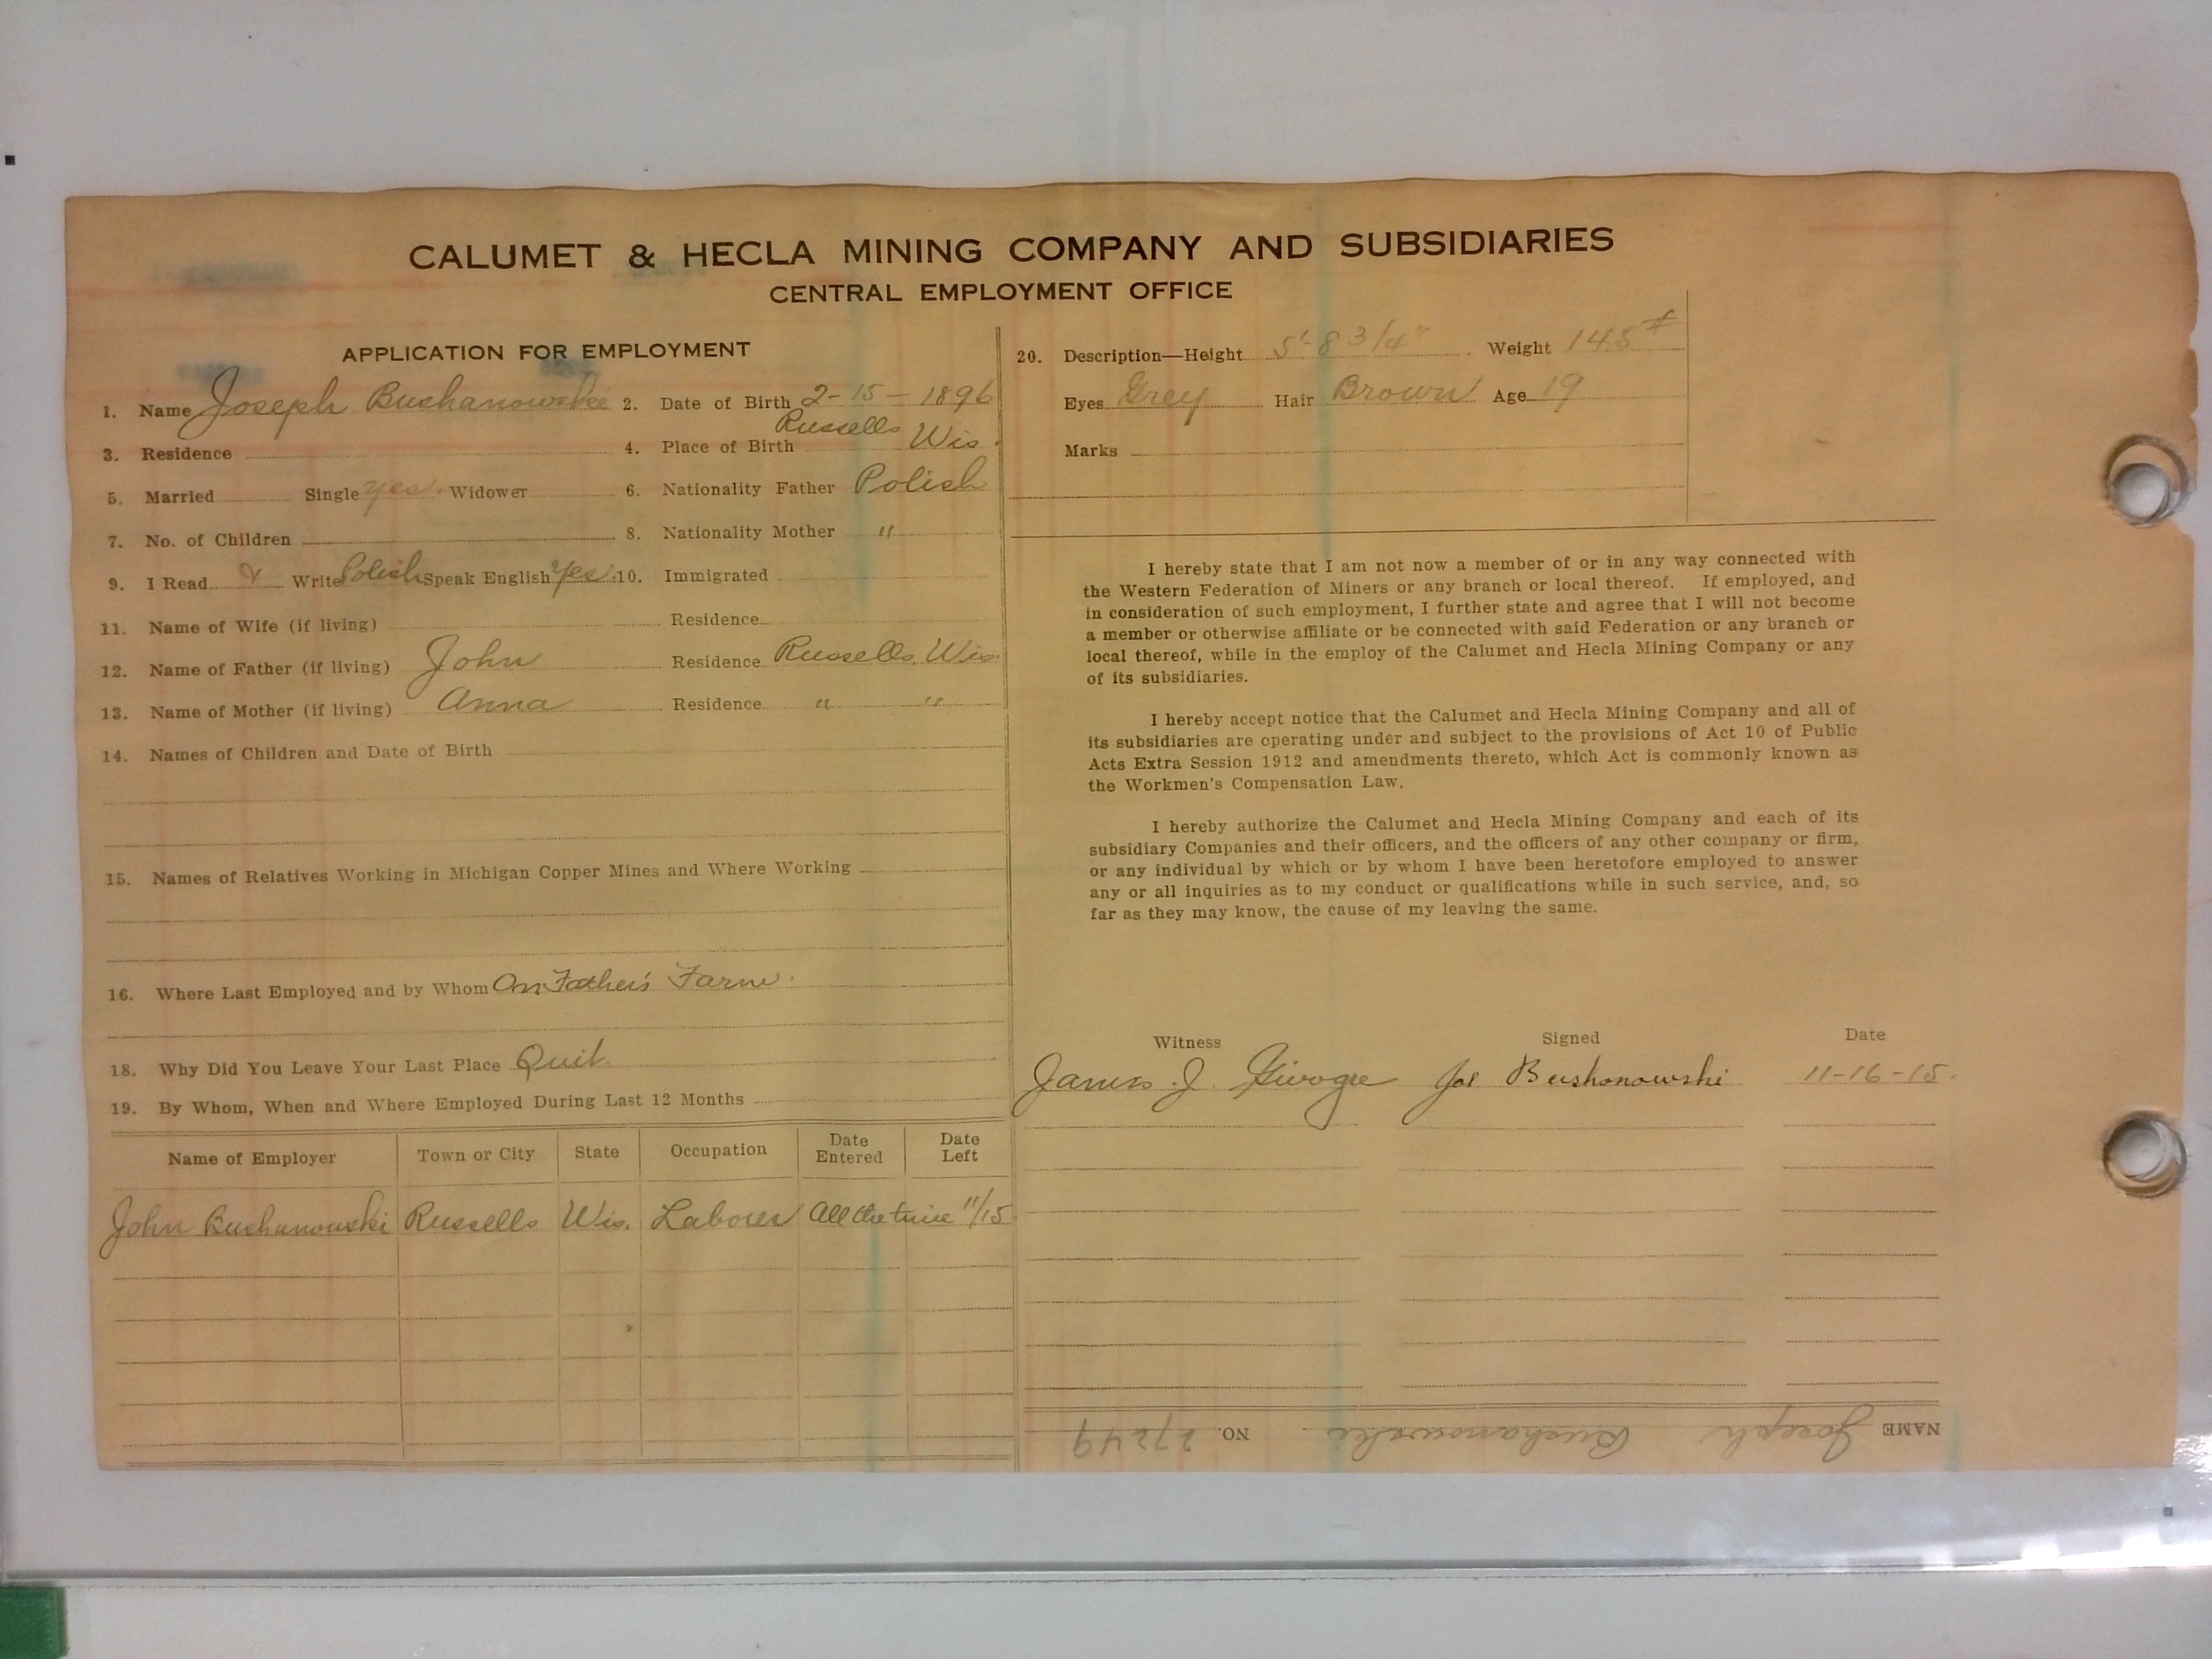 CALUMET & HECLA MINING COMPANY AND SUBSIDIARIES
CENTRAL EMPLOYMENT OFFICE
APPLICATION FOR EMPLOYMENT
1. Name Joseph Bushanowski 2. Date of Birth 2-15-1896
3. Residence 4. Place of Birth Russells Wis.
5. Married Single yes. Widower 6. Nationality Father Polish
7. No. of Children 8. Nationality Mother "
9. I Read & Write Polish Speak English Yes. 10. Immigrated
11. Name of Wife (if living) Residence
12. Name of Father (if living) John Residence Russells, Wis.
13. Name of Mother (if living) Anna Residence " "
14. Names of Children and Date of Birth
15. Names of Relatives Working in Michigan Copper Mines and Where Working
16. Where Last Employed and by Whom On Father's Farm.
18. Why Did You Leave Your Last Place Quit.
19. By Whom, When and Where Employed During Last 12 Months
Name of Employer Town or City State Occupation Date Entered Date Left
John Bushanowski Russells Wis. Laborer All the time 11/15
20. Description—Height 5'-8 3/4" Weight 145#
Eyes Grey Hair Brown Age 19
Marks
I hereby state that I am not now a member of or in any way connected with
the Western Federation of Miners or any branch or local thereof. If employed, and
in consideration of such employment, I further state and agree that I will not become
a member or otherwise affiliate or be connected with said Federation or any branch or
local thereof, while in the employ of the Calumet and Hecla Mining Company or any
of its subsidiaries.
I hereby accept notice that the Calumet and Hecla Mining Company and all of
its subsidiaries are operating under and subject to the provisions of Act 10 of Public
Acts Extra Session 1912 and amendments thereto, which Act is commonly known as
the Workmen's Compensation Law.
I hereby authorize the Calumet and Hecla Mining Company and each of its
subsidiary Companies and their officers, and the officers of any other company or firm,
or any individual by which or by whom I have been heretofore employed to answer
any or all inquiries as to my conduct or qualifications while in such service, and, so
far as they may know, the cause of my leaving the same.
Witness Signed Date
James J. Joe Bushonowski 11-16-15.
NAME Joseph Bushanowski NO. 27249